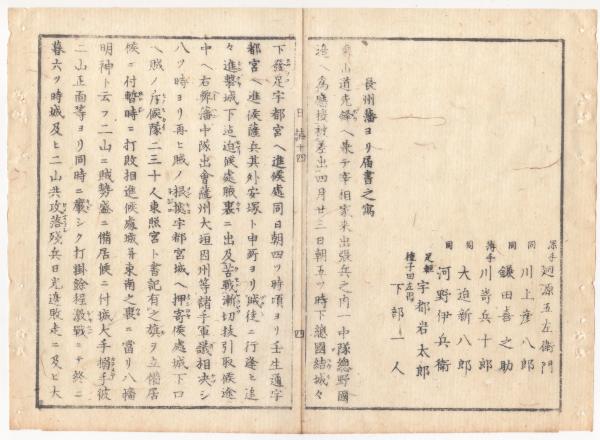 深手 辺源五左衛門
同 川上彦八郎
同 鎌田喜之助
薄手 川崎兵十郎
同 大迫新八郎
同 河野伊兵衛
足輕 宇都岩太郎
種子田左門 下部一人
長州藩ヨリ届書之寫
東山道先鋒ヘ兼テ宰相家来出張兵之内一中隊總野國
邉ヘ為應援被差出四月廿三日朝五ツ時下總國結城
日誌十四
四
下發足宇都宮ヘ進候處同日朝四ツ時頃ヨリ壬生通宇
都宮ヘ進候薩兵其外安塚ト申所ヨリ賊後ニ行逢ヒ追
々進撃城下迠迫候處賊裏ニ出及苦戰漸切技引取候途
中ヘ右弊藩中隊出會薩州大垣因州等諸手軍議相央シ
八ツ時ヨリ再ヒ賊ノ根據宇都宮城ヘ押寄候處城下口
ヘ賊ノ斥候隊二三十人東照宮ト書記有之旗ヲ立備居
候ニ付暫時ニ打敗相進候處城并東南之裏ニ當リ八幡
明神ト云フ二山ニ賊勢盛ニ備居候ニ付城大手搦手彼
二山正面等ヨリ同時ニ嚴シク打掛餘程激戰ニテ終ニ
暮六ツ時城及ヒ二山共攻落殘兵日光邉敗走ニ及ヒ大